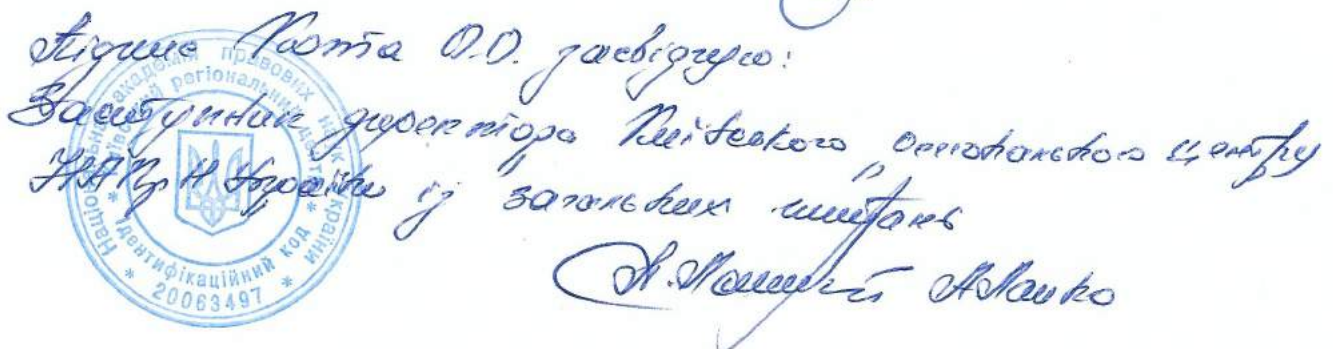 Підпис Кота О.О. засвідчую:
Заступник директора Київського регіонального центру
НАПрН України із загальних питань
Національна академія правових наук України
Київський регіональний центр
* Ідентифікаційний код *
20063497